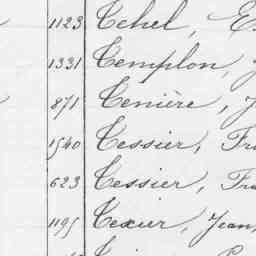 1123 Tchel,
1331 Templon,
871 Tenière,
1540 Tessier, Fra
623 Tessier, Fra
1195 Texier, Jean,